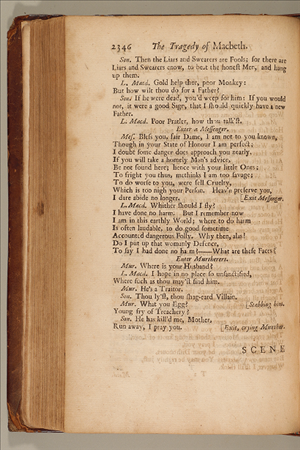 2346 The Tragedy of Macbeth.
Son. Then the Liars and Swearers are Fools; for there are
Liars and Swearers enow, to beat the honest Men, and hang
up them.
L. Macd. Gold help thee, poor Monkey:
But how wilt thou do for a Father?
Son. If he were dead, you'd weep for him: If you would
not, it were a good Sign, that I should quickly have a new
Father.
L. Macd. Poor Pratler, how thou talk'st.
Enter a Messenger.
Mes. Bless you, fair Dame, I am not to you known,
Though in your State of Honour I am perfect;
I doubt some danger does approach you nearly.
If you will take a homely Man's advice,
Be not found here; hence with your little Ones;
To fright you thus, methinks I am too savage;
To do worse to you, were fell Cruelty,
Which is too nigh your Person. Heav'n preserve you,
I dare abide no longer. [Exit Messenger.
L. Macd. Whither should I fly?
I have done no harm. But I remember now
I am in this earthly World; where to do harm
Is often laudable, to do good sometime
Accounted dangerous Folly. Why then, alas!
Do I put that womanly Defence,
To say I had done no harm?—What are these Faces?
Enter Murtherers.
Mur. Where is your Husband?
L. Macd. I hope in no place so unsanctified,
Where such as thou may'st find him.
Mur. He's a Traitor.
Son. Thou ly'st, thou shag-ear'd Villain.
Mur. What you Egg? [Stabbing him.
Young fry of Treachery?
Son. He has kill'd me, Mother,
Run away, I pray you. [Exit, crying Murther.
SCENE